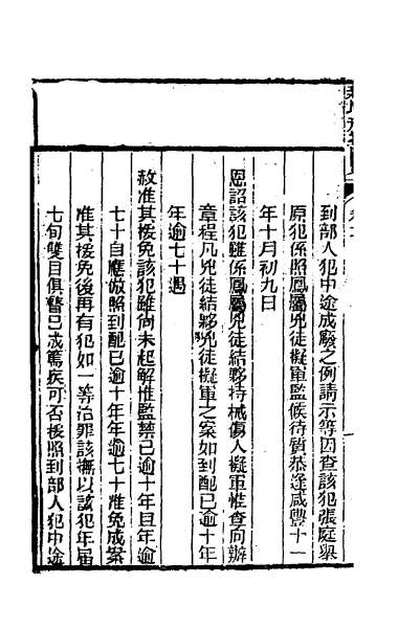 到部人犯中途成廢之例請示等因查該犯張庭舉
原犯係照鳳屬兇徒擬軍監候待質恭逢咸豐十一
年十月初九日
恩詔該犯雖係鳳屬兇徒結夥持械傷人擬軍惟查向辦
章程凡兇徒結夥兇徒擬軍之案如到配已逾十年
年逾七十遇
赦准其援免該犯雖尚未起解惟監禁已逾十年且年逾
七十自應倣照到配已逾十年年逾七十准免成案
准其援免後再有犯加一等治罪該撫以該犯年屆
七旬雙目俱瞽已成篤疾可否援照到部人犯中途